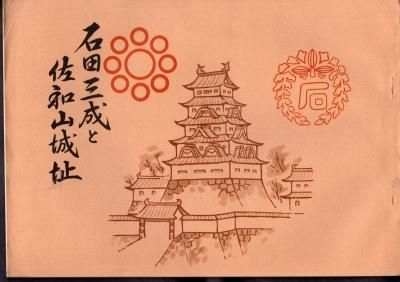 石田三成と
佐和山城址
石